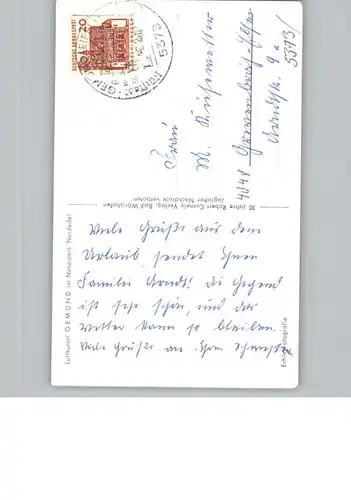 Viele Grüße aus dem
Urlaub sendet Ihnen
Familie Arndt! Die Gegend
ist sehr schön, und das
Wetter kann so bleiben.
Viele Grüße an Ihre
Frau
M.
4048 Grevenbroich-Elsen
9a
5373/
DEUTSCHE BUNDESPOST
20
5373
Luftkurort GEMÜND im Naturpark Nordeifel
20 Jahre Robert Cornely Verlag, Bad Wörishofen
Jeglicher Nachdruck verboten
Echte Fotografie